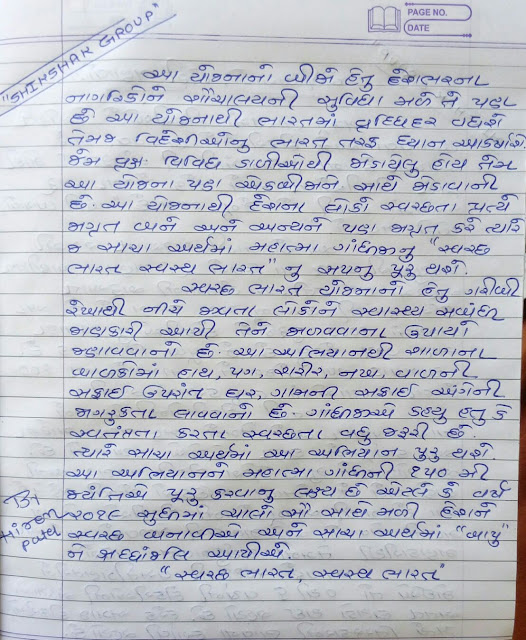 PAGE NO.
DATE
"SHIKSHAK GROUP"
આ યોજનાનો બીજો હેતુ દેશભરના
નાગરિકોને શૌચાલયની સુવિધા મળે તે પણ
છે. આ યોજનાથી ભારતમાં વૃધ્ધિદર વધશે
તેમજ વિદેશીઓનુ ભારત તરફ ધ્યાન આકર્ષાશે.
જેમ વૃક્ષ વિવિધ ડાળીઓથી જોડાયેલુ હોય તેમ
આ યોજના પણ એકબીજાને સાથે જોડાવાની
છે. આ યોજનાથી દેશના લોકો સ્વચ્છતા પ્રત્યે
જાગૃત બને અને અન્યને પણ જાગૃત કરે ત્યારે
જ સાચા અર્થમાં મહાત્મા ગાંધીજીનુ "સ્વચ્છ
ભારત સ્વસ્થ ભારત" નુ સપનુ પૂરુ થશે.
સ્વચ્છ ભારત યોજનાનો હેતુ ગરીબી
રેખાથી નીચે જીવતા લોકોને સ્વાસ્થ્ય સબંધી
જાણકારી આપી તેને જાળવવાના ઉપાયો
જણાવવાનો છે. આ અભિયાનથી શાળાના
બાળકોમાં હાથ, પગ, શરીર, નખ, વાળની
સફાઈ ઉપરાંત ઘર, ગામની સફાઈ અંગેની
જાગરુકતા લાવવાનો છે. ગાંધીજીએ કહ્યુ હતુ કે
સ્વતંત્રતા કરતા સ્વચ્છતા વધુ જરૂરી છે.
ત્યારે સાચા અર્થમાં આ અભિયાન પૂરુ થશે.
આ અભિયાનને મહાત્મા ગાંધીની ૧૫૦ મી
જયંતિએ પૂરૂ કરવાનુ લક્ષ્ય છે એટલે કે વર્ષ
૨૦૧૯ સુધીમાં ચાલો સૌ સાથે મળી દેશને
સ્વચ્છ બનાવીએ અને સાચા અર્થમાં "બાપુ"
ને શ્રધ્ધાંજલિ આપીએ.
"સ્વચ્છ ભારત, સ્વસ્થ ભારત"
By
Hiren
Patel